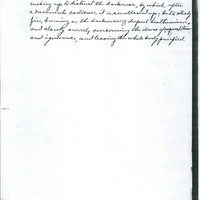 making up to distract the darkness, by which, after
a moment's radiance, it is swallowed up; but a steady
fire, burning in the darkness of deepest heathenism,
and slowly surely consuming the dross of superstition
and ignorance, and leaving the whole body purified.